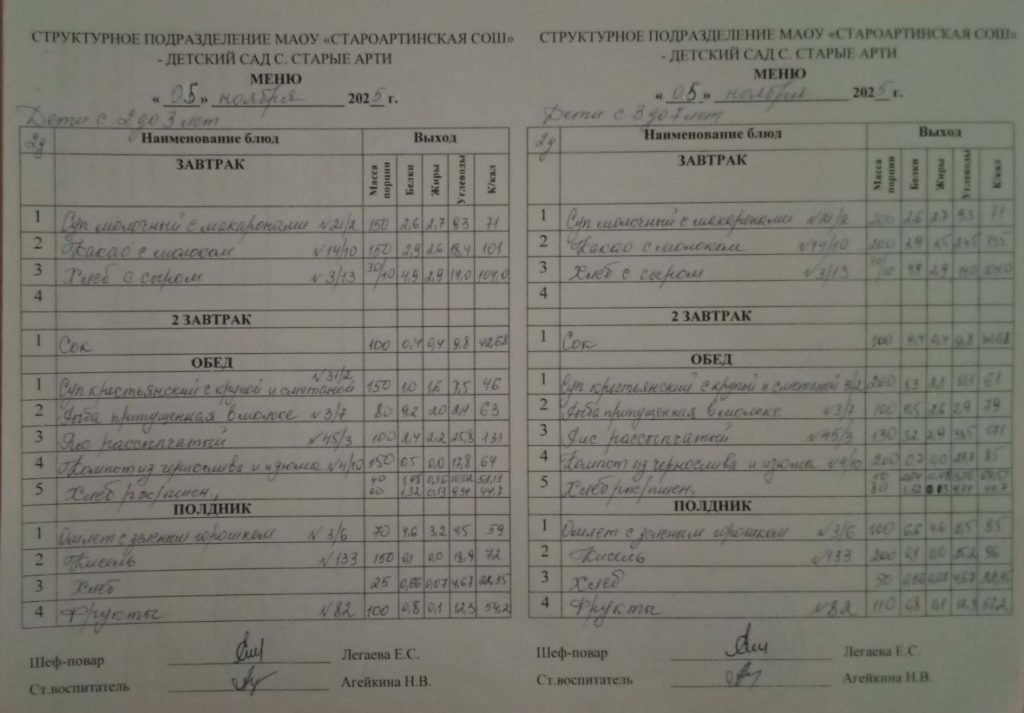 СТРУКТУРНОЕ ПОДРАЗДЕЛЕНИЕ МАОУ «СТАРОАРТИНСКАЯ СОШ»
- ДЕТСКИЙ САД С. СТАРЫЕ АРТИ
МЕНЮ
« 05 » ноября 2025 г.
Дети с 2 до 3 лет
2д Наименование блюд Выход
ЗАВТРАК Масса порции Белки Жиры Углеводы К/кал
1 Суп молочный с макаронами №21/2 150 2,6 2,7 9,3 71
2 Какао с молоком №14/10 150 2,9 2,6 18,4 101
3 Хлеб с сыром №3/13 30/10 4,9 2,9 19,0 104,0
4
2 ЗАВТРАК
1 Сок 100 0,4 0,4 9,8 42,68
ОБЕД
1 Суп крестьянский с крупой и сметаной №31/2 150 1,0 1,6 7,5 46
2 Рыба припущенная в молоке №3/7 80 9,2 2,0 2,4 63
3 Рис рассыпчатый №45/3 100 2,4 2,2 25,8 131
4 Компот из чернослива и изюма №4/10 150 0,5 0,0 17,8 64
5 Хлеб рж/пшен, 40 60 1,32 0,13 9,34 44,7
ПОЛДНИК
1 Омлет с зеленым горошком №3/6 70 4,6 3,2 4,5 59
2 Кисель №133 150 0,1 0,0 18,9 72
3 Хлеб 25 0,66 0,07 4,67 22,35
4 Фрукты №82 100 0,8 0,1 12,3 54,2
Шеф-повар Легаева Е.С.
Ст.воспитатель Агейкина Н.В.
СТРУКТУРНОЕ ПОДРАЗДЕЛЕНИЕ МАОУ «СТАРОАРТИНСКАЯ СОШ»
- ДЕТСКИЙ САД С. СТАРЫЕ АРТИ
МЕНЮ
« 05 » ноября 2025 г.
Дети с 3 до 7 лет
2д Наименование блюд Выход
ЗАВТРАК Масса порции Белки Жиры Углеводы К/кал
1 Суп молочный с макаронами №21/2 200 2,6 2,7 9,3 71
2 Какао с молоком №14/10 200 3,9 3,5 24,5 135
3 Хлеб с сыром №3/13 30/10 4,9 2,9 104,0
4
2 ЗАВТРАК
1 Сок 100 0,4 0,4 9,8 42,68
ОБЕД
1 Суп крестьянский с крупой и сметаной 31/2 200 1,3 2,1 10,1 61
2 Рыба припущенная в молоке №3/7 100 11,5 2,6 2,9 79
3 Рис рассыпчатый №45/3 130 3,2 2,9 33,5 171
4 Компот из чернослива и изюма №4/10 200 0,7 0,0 23,7 85
5 Хлеб рж/пшен, 80 1,32 0,13 9,34 44,7
ПОЛДНИК
1 Омлет с зеленым горошком №3/6 100 6,6 4,6 6,5 85
2 Кисель №133 200 0,1 0,0 25,2 96
3 Хлеб 50 0,66 0,07 4,67 22,35
4 Фрукты №82 110 0,8 0,1 12,3
Шеф-повар Легаева Е.С.
Ст.воспитатель Агейкина Н.В.